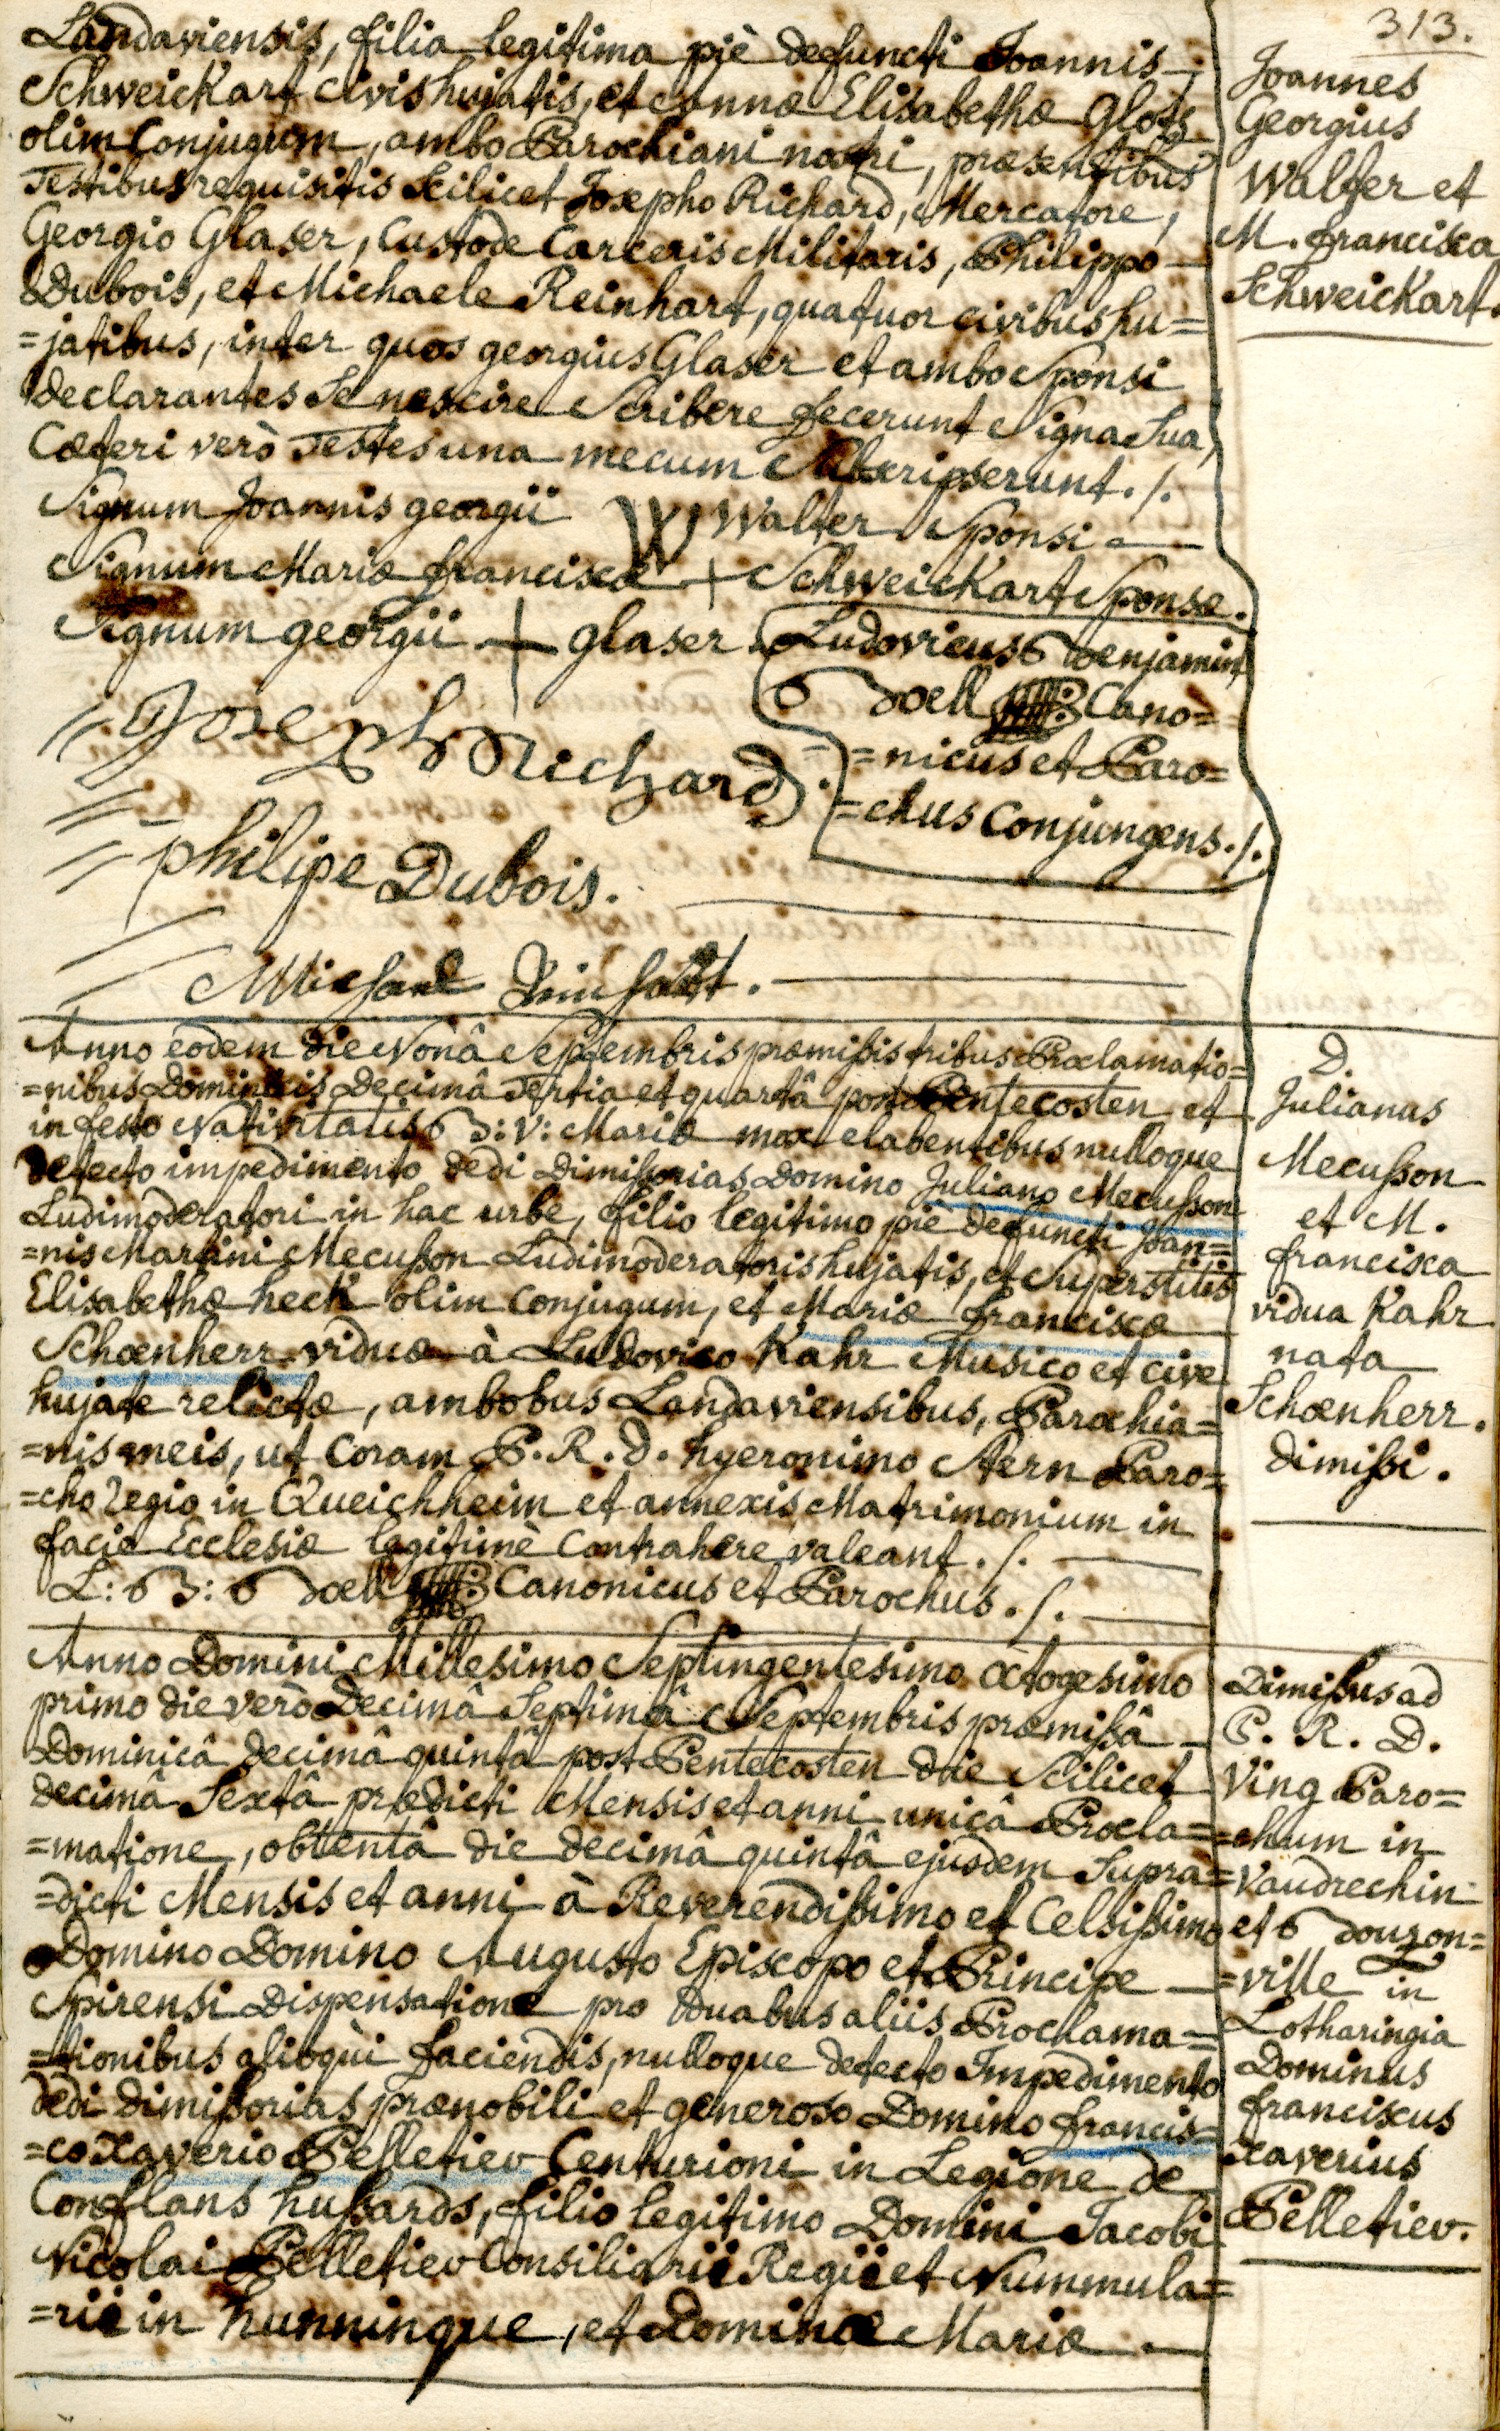 313.
Landaviensis, filia legitima piè defuncti Joannis
Schweickart civis hujatis, et Annæ Elisabethæ Glotz
olim Conjugum, ambo Parochiani nostri, præsentibus
Testibus requisitis scilicet Josepho Richard, Mercatore,
Georgio Glaser, Custode Carceris Militaris, Philippo
Dubois, et Michaele Reinhart, quatuor civibus hu=
=jatibus, inter quos georgius Glaser et ambo Sponsi
declarantes Se nescire Scribere fecerunt Signa Sua,
Cæteri verò Testes una mecum Subscripserunt ./.
Signum Joannis georgii W Walter Sponsi
Signum Mariæ franciscæ + Schweickart Sponsæ.
Signum georgii + glaser.
Ludovicus Benjamin
Doell Cano=
=nicus et Paro=
=chus Conjungens ./.
Joseph Richard
philipe Dubois.
Michael Reinhart.
Joannes
Georgius
Walter et
M. francisca
Schweickart.
Anno eodem die Nonâ Septembris præmissis tribus Proclamatio=
=nibus Dominicis Decimâ Tertia et quartâ post Pentecosten et
in festo Nativitatis B: V: Mariæ mox elabentibus nulloque
detecto impedimento dedi Dimissorias Domino Juliano Mecusson
Ludimoderatori in hac urbe, filio legitimo piè defuncti Joan=
=nis Martini Mecusson Ludimoderatoris hujatis, et Superstitis
Elisabethæ heck olim Conjugum, et Mariæ franciscæ
Schœnherr viduæ à Ludovico Kahr Musico et cive
hujate relictæ, ambobus Landaviensibus, Parochia=
=nis meis, ut Coram P. R. D. hyeronimo Aern Paro=
=cho Regio in Queichheim et annexis Matrimonium in
facie Ecclesiæ legitimè Contrahere valeant ./.
L: B: Doell Canonicus et Parochus ./.
D.
Julianus
Mecusson
et M.
francisca
vidua Kahr
nata
Schœnherr.
dimissi.
Anno Domini Millesimo Septingentesimo octogesimo
primo die verò Decimâ Septimâ Septembris præmissâ
Dominicâ decimâ quintâ post Pentecosten die Scilicet
decimâ Sextâ prædicti Mensis et anni unicâ Procla=
=matione, obtentâ die decimâ quintâ ejusdem Supra=
=dicti Mensis et anni à Reverendissimo et Celsissimo
Domino Domino Augusto Episcopo et Principe
Spirensi Dispensatione pro duabus aliis Proclama=
=tionibus alioqùi faciendis, nulloque detecto Impedimento
dedi dimissorias prænobili et generoso Domino francis=
=co Xaverio Pelletier Centurioni in Legione de
Conflans hussards, filio legitimo Domini Jacobi
Nicolai Pelletier Consiliarii Regii et Nummula=
=rii in hunningue, et Dominæ Mariæ
Dimissus ad
P. R. D.
Ving Paro=
=chum in
Vaudrechin
et Bouzon=
=ville in
Lotharingia
Dominus
franciscus
xaverius
Pelletier.